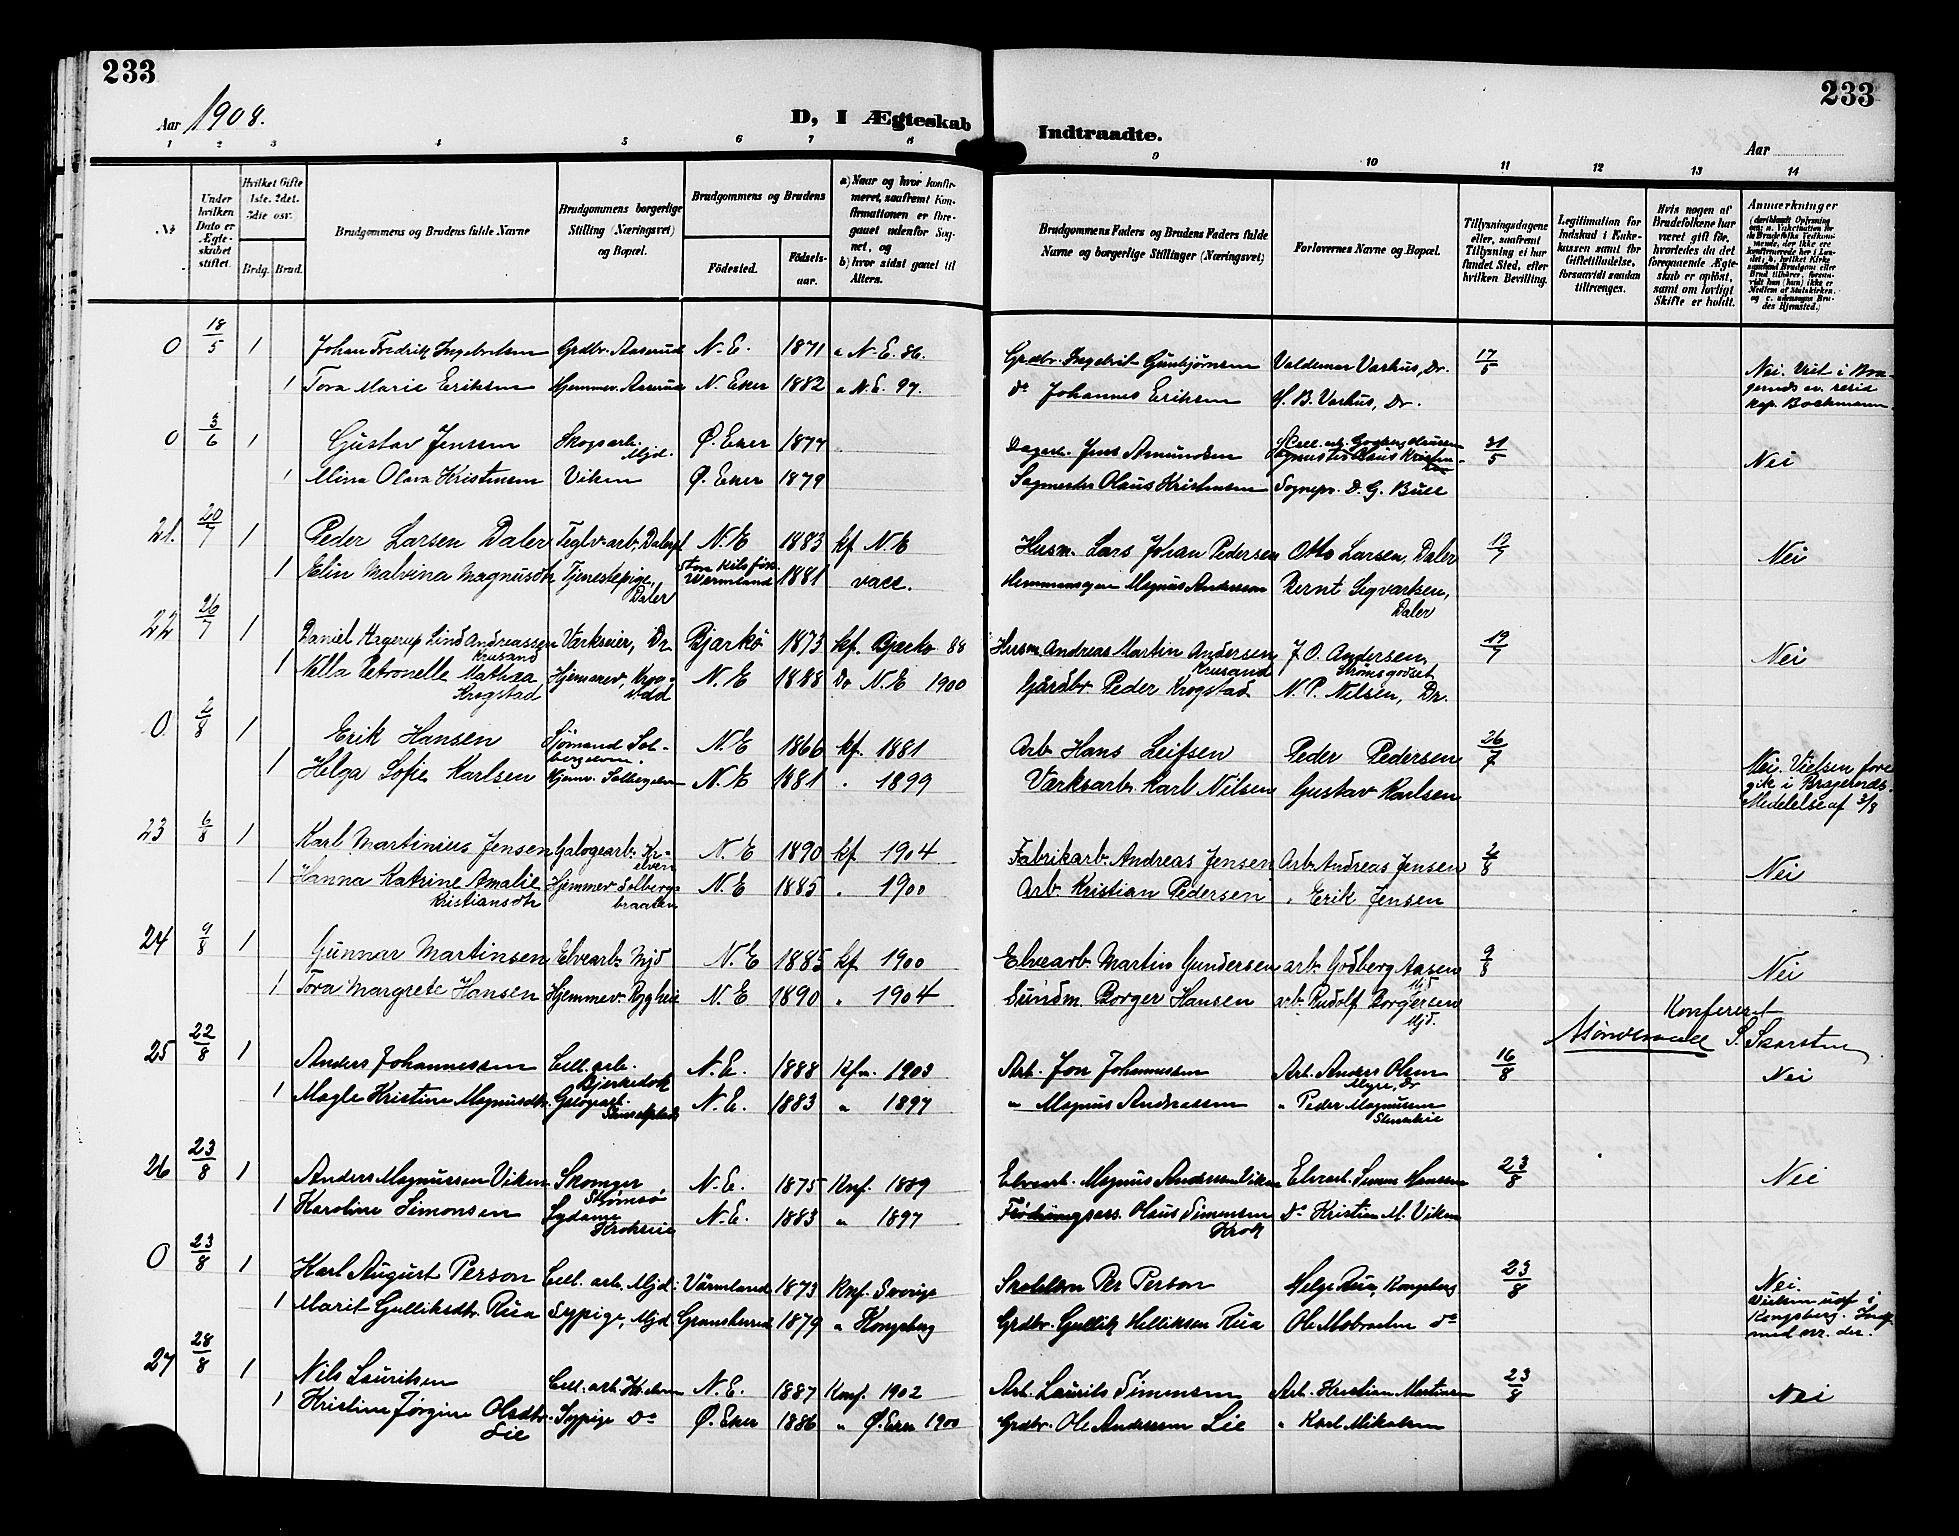 233
233
Aar 1908.
D, I Ægteskab
Indtraadte.
Aar
1 2 3 4 5 6 7 8 9 10 11 12 13 14
No
Under hvilken Dato er Ægteskabet stiftet.
Hvilket Gifte 1ste, 2det, 3die osv.
Brdg. Brud.
Brudgommens og Brudens fulde Navne
Brudgommens borgerlige Stilling (Næringsvei) og Bopæl.
Brudgommens og Brudens
Fødested.
Fødselsaar.
a) Naar og hvor konfirmeret, saafremt Konfirmationen er foregaaet udenfor Sognet, og
b) hvor sidst gaaet til Alters.
Brudgommens Faders og Brudens Faders fulde Navne og borgerlige Stillinger (Næringsvei)
Forlovernes Navne og Bopæl.
Tillysningsdagene eller, saafremt Tillysning ei har fundet Sted, efter hvilken Bevilling.
Legitimation for Indskud i Enkekassen samt for Giftetilladelse, forsaavidt saadan tiltrænges.
Hvis nogen af Brudefolkene har været gift før, hvorledes da det foregaaende Ægteskab er opløst, samt om lovligt Skifte er holdt.
Anmærkninger
0 18/5 1 Johan Fredrik Ingebretsen Grdbr. Aaserud N. E. 1871 a N. E. 86. Grdbr. Ingebrit Gunbjørnsen Valdemar Varhus, Dr. 17/5 Nei. Viet i Bragernds av resid kap. Bockmann.
1 Tora Marie Eriksen Hjemmev. Aaserud N. Eker 1882 a N. E. 97. do Johannes Eriksen H. B. Varhus, Dr.
0 3/6 1 Gustav Jensen Skogsarb. Mjd. Ø. Eker 1877 Dagarb. Jens Amundsen 31/5 Nei
1 Mina Olava Kristensen Viken Ø. Eker 1879 Sagmester Olaus Kristensen Sognepr. D. G. Bull
21. 20/7 1 Peder Larsen Daler Teglv-arb, Daler N. E 1883 kf N. E Husm. Lars Johan Pedersen Otto Larsen, Daler 12/7 Nei
1 Elin Malvina Magnusdtr Tjenestepige, Daler Stor Kils før. Wermland 1881 vacc. Hemmansegar Magnus Andersson Bernt Sigvartsen, Daler
22 26/7 1 Daniel Aagerup Lind Andreassen Krusand Værkseier, Dr Bjarkö 1873 kf. Bjarkö 88 Husm. Andreas Martin Andersen Krusand J. O. Andersen, Strømsgodset 19/7 Nei
1 Nella Petronelle Matilda Krogstad Hjemmev, Krogstad N. E 1888 Do N. E 1900 Gårdbr Peder Krogstad N. P. Nilsen, Dr.
0 2/8 1 Erik Hansen Sjømand Solbergelven. N. E 1866 kf. 1881 Arb Hans Leifsen Peder Pedersen 26/7 Nei. Vielsen foregik i Bragernds. Medelelse af 3/8
1 Helga Sofie Karlsen Hjemv. Solbergelven N. E 1881 " 1899 Værksarb. Karl Nilsen Gustav Karlsen
23 6/8 1 Karl Martinius Jensen Galogearb. Krelven N. E 1890 kf 1904 Fabrikarb. Andreas Jensen Arb. Andreas Jensen 2/8 Nei
1 Hanna Katrine Amalie Kristiansdtr Hjemmev Solbergsbraaten N. E 1885 " 1900 Arb Kristian Pedersen " Erik Jensen
24 9/8 1 Gunnar Martinsen Elvearb. Mjd N. E 1885 kf 1900 Elvearb. Martin Gundersen arb. Godberg Aasen Mjd 9/8 Nei
1 Tora Margrete Hansen Hjemmev. Ryghei N. E 1890 " 1904 Sundm. Borger Hansen arb. Rudolf Borgersen Mjd.
Konfereret
S. Skarsten
25 22/8 1 Anders Johannessen Cell. arb. N. E. 1888 Kfn. 1903 Arb. Jon Johannessen Art. Anders Olsen Myre, Dr 16/8 Nei
1 Magle Kristine Magnusdtr. Galogearb. N. E. 1883 " 1897 " Magnus Andreassen " Peder Magnussen
26 23/8 1 Anders Magnussen Viken Skomager Strømsø N. E. 1875 Knf. 1889 Elvearb. Magnus Andersen Viken Elvearb. Simen Hansen 23/8 Nei
1 Karoline Simonsen Sydame N. E. 1883 " 1897 Olaus Simonsen Krok do Kristian M. Viken
0 23/8 1 Karl August Person Cell. arb. Mjd. Värmland 1873 Knf. Sverige Per Person Helge Rua, Kongsberg 23/8 Nei. Vielsen udf i Kongsberg.
1 Marit Gulliksdtr. Rua Sypige, Mjd Gransherred 1879 " Kongsberg Grdbr. Gullik Helliksen Rua Ole Mobraaten do
27 28/8 1 Nils Lauritsen Cell. arb. Kr.elven N. E. 1887 Knf. 1902 Arb. Laurits Simensen Arb. Kristian Martinsen 23/8 Nei
1 Kristine Jørgine Olsdtr. Lie Sypige do Ø. Eker 1886 " Ø. Eker 1900 Grdbr. Ole Andersen Lie " Karl Mikalsen